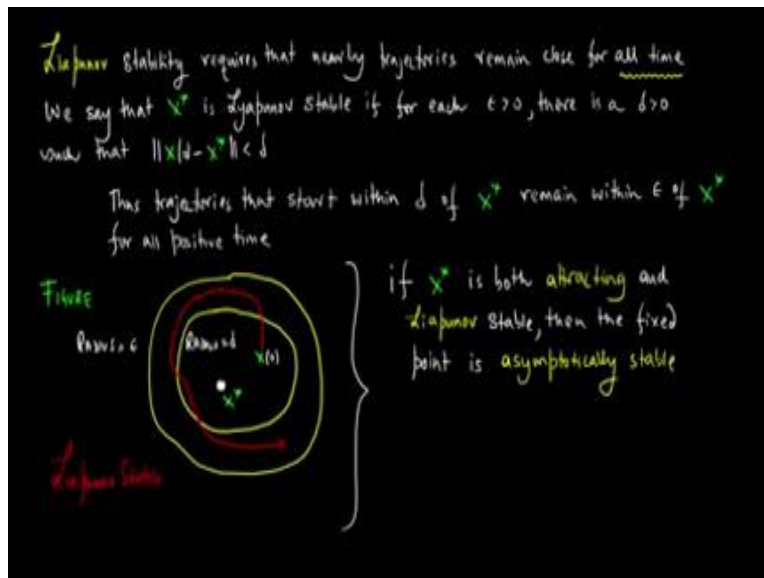 Liapunov stability requires that nearby trajectories remain close for all time
We say that x* is Lyapunov stable if for each ε>0, there is a δ>0
such that ||x(d-x*||<δ
Thus trajectories that start within δ of x* remain within ε of x*
for all positive time
FIGURE
Radius=ε
Radius=δ
x(0)
x*
Liapunov Stable
if x* is both attracting and
Liapunov stable, then the fixed
point is asymptotically stable